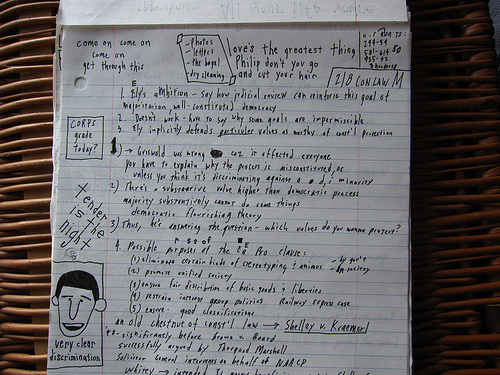 come on come on
come on
get through this
-photos
-letters
-the bagel
dry cleaning
love's the greatest thing
Philip don't you go
and cut your hair
294-54
2/8 CON LAW M
1. Ely's ambition - say how judicial review can reinforce this goal of
majoritarian well-constituted democracy
2. Doesn't work - have to say why some goals are impermissible
3. Ely implicitly defends particular values as worthy of const'l protection
CORPS
grade
today?
1) → Griswold was wrong coz it affected everyone
you have to explain why the process is misconstrued, or
unless you think it's discriminating against a d, i minority
2) There's a substantive value higher than democratic process
majority substantively cannot do some things
democratic flourishing theory
3) Thus, he's answering the question - which values do you wanna protect?
tender
is the
night
4. Possible purposes of the Eq Pro clause:
(1) eliminate certain kinds of stereotyping & animus - by gov't
- by society
(2) promote unified society
(3) ensure fair distribution of basic goods & liberties
(4) restrain interest group politics Railway Express case
(5) ensure good classifications
an old chestnut of const'l law → Shelley v. Kraemer
'48 - significantly before Brown v. Board
successfully argued by Thurgood Marshall
Solicitor General intervenes on behalf of NAACP
very clear
discrimination